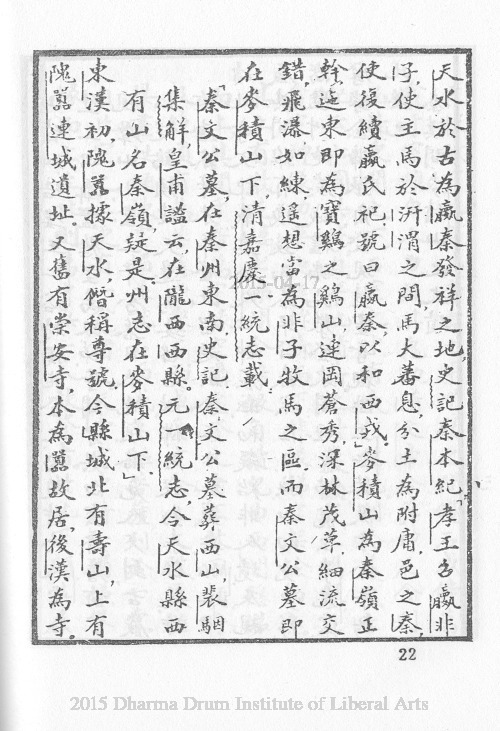 天水於古為嬴秦發祥之地，史記秦本紀，「孝王召嬴非
子，使主馬於汧渭之間，馬大蕃息，分土為附庸，邑之秦，
使復續嬴氏祀，號曰嬴秦，以和西戎。」麥積山為秦嶺正
幹，迤東即為寶鷄之鷄山，連岡蒼秀，深林茂草，細流交
錯，飛瀑如練，遥想當為非子牧馬之區，而秦文公墓即
在麥積山下，清嘉慶一統志載：
「秦文公墓，在秦州東南，史記，秦文公墓葬西山，裴駰
集解，皇甫謐云，在隴西西縣。元一統志，今天水縣西
有山名秦嶺，疑是。州志在麥積山下」
東漢初，隗囂據天水，僭稱尊號，今縣城北有壽山，上有
隗囂連城遺址。又舊有崇安寺，本為囂故居，後漢為寺。
22
2015-04-17
2015 Dharma Drum Institute of Liberal Arts